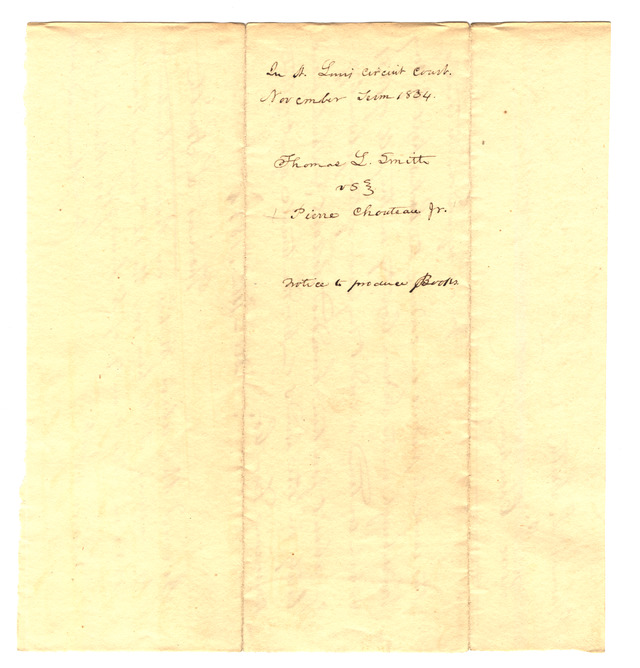 In St. Louis Circuit Court.
November Term 1834.
Thomas L. Smith
vs
Pierre Chouteau Jr.
Notice to produce Books